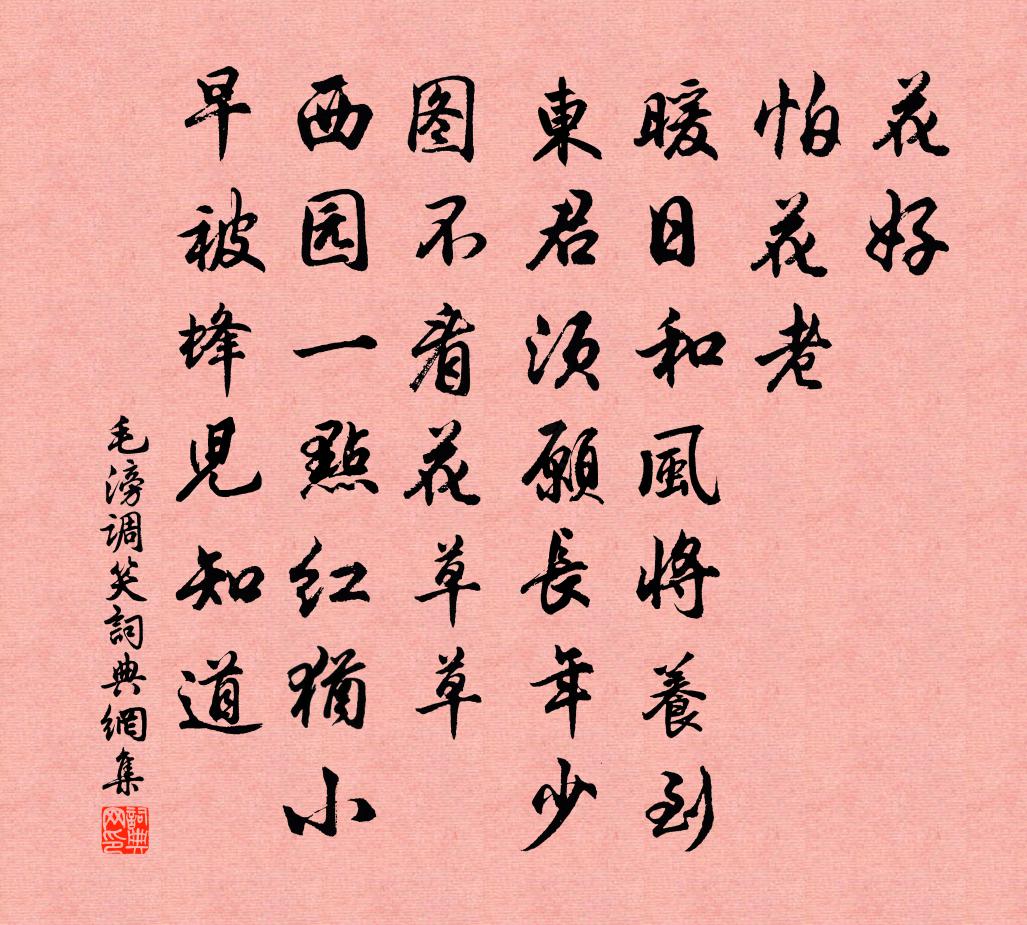 花好
怕花老
暖日和風將養到
東君須願長年少
图不看花草草
西园一點红猶小
早被蜂児知道
毛滂调笑詞典網集
詞典网印